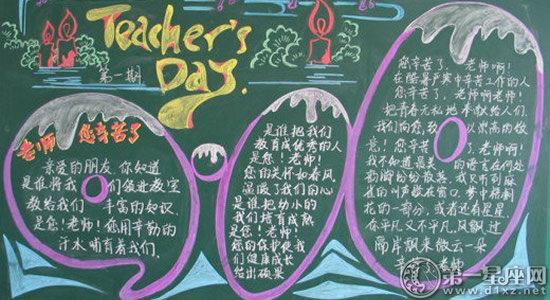 Teacher's
Day.
第一期
老师 您辛苦了
亲爱的朋友,你知道
是谁将我们领进教室
教给我们丰富的知识.
是您!老师!您用辛勤的
汗水哺育着我们.
是谁把我们
教育成优秀的人
是您!老师!
您的关怀如春风
温暖了我们的心
是谁把幼小的
我们培育成熟
是您!老师!
您的保护使我
们健康成长
给出硕果
您辛苦了,老师啊!
在酷暑严寒中辛苦工作的人
您辛苦了,老师啊老师!
把青春无私地奉献给人们.
我们向您,致以崇高的敬
意!您辛苦了,老师啊!
我不知道最美的语言在何处
的叫声唤在窗口,梦中
花的一部分,或者还有星星,
在平凡又不平凡风飘过
两岸飘来微云一朵
老师
第一星座网
www.d1xz.net